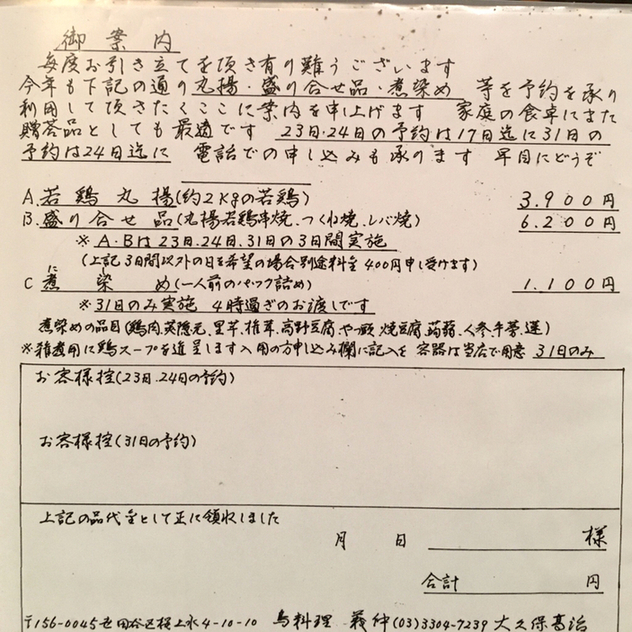 御案内
毎度お引き立てを頂き有り難うございます
今年も下記の通り丸揚・盛り合せ品・煮染め 等を予約を承り
利用して頂きたくここに案内を申上げます 家庭の食卓にまた
贈答品としても最適です 23日・24日の予約は17日迄に31日の
予約は24日迄に 電話での申し込みも承ります 早目にどうぞ
A.若鶏丸揚(約2Kgの若鶏) 3.900円
B.盛り合せ品(丸揚若鶏串焼.つくね焼.レバ焼) 6.200円
※A.Bは23日.24日.31日の3日間実施
(上記3日間以外の日を希望の場合別途料金400円申し受けます)
に
C 煮染め(一人前のパック詰め) 1.100円
※31日のみ実施 4時過ぎのお渡しです
煮染めの品目(鶏肉.英隠元.里芋.椎茸.高野豆腐.焼豆腐.蒟蒻.人参.牛蒡.蓮)
※雑煮用に鶏スープを進呈します入用の方申し込み欄に記入を 容器は当店で用意 31日のみ
お客様控(23日.24日の予約)
お客様控(31日の予約)
上記の品代金として正に領収しました
月 日 様
合計 円
〒156-0045世田谷区桜上水4-10-10 鳥料理 義仲(03)3304-7239 大久保高治